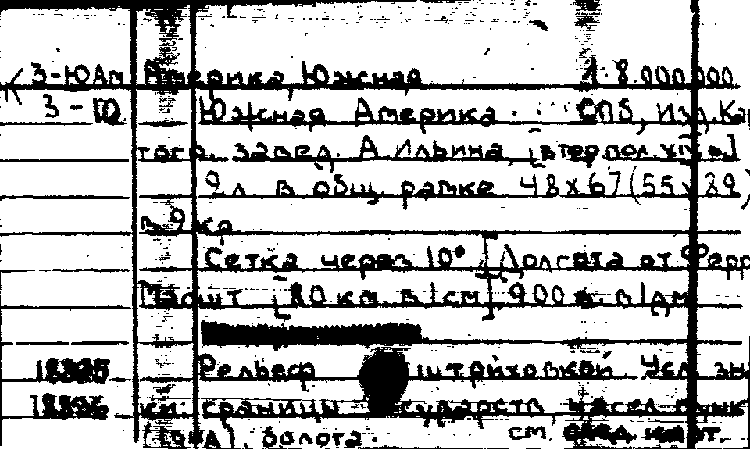 З-ЮАм Америка Южная 1:8.000.000
З-Ю Южная Америка. СПб, Изд. Кар
того. завед. А. Ильина, [втор. пол. XIX в.]
9 л. в общ. рамке 48x67(55x89)
в 9 кр.
Сетка через 10° Долгота от Ферр
Масшт. [80 км. в 1 см] 900 в. в 1 дм
Рельеф штриховкой. Усл. зна
ки: границы государств, насел. пунк
болота. см. след. карт.